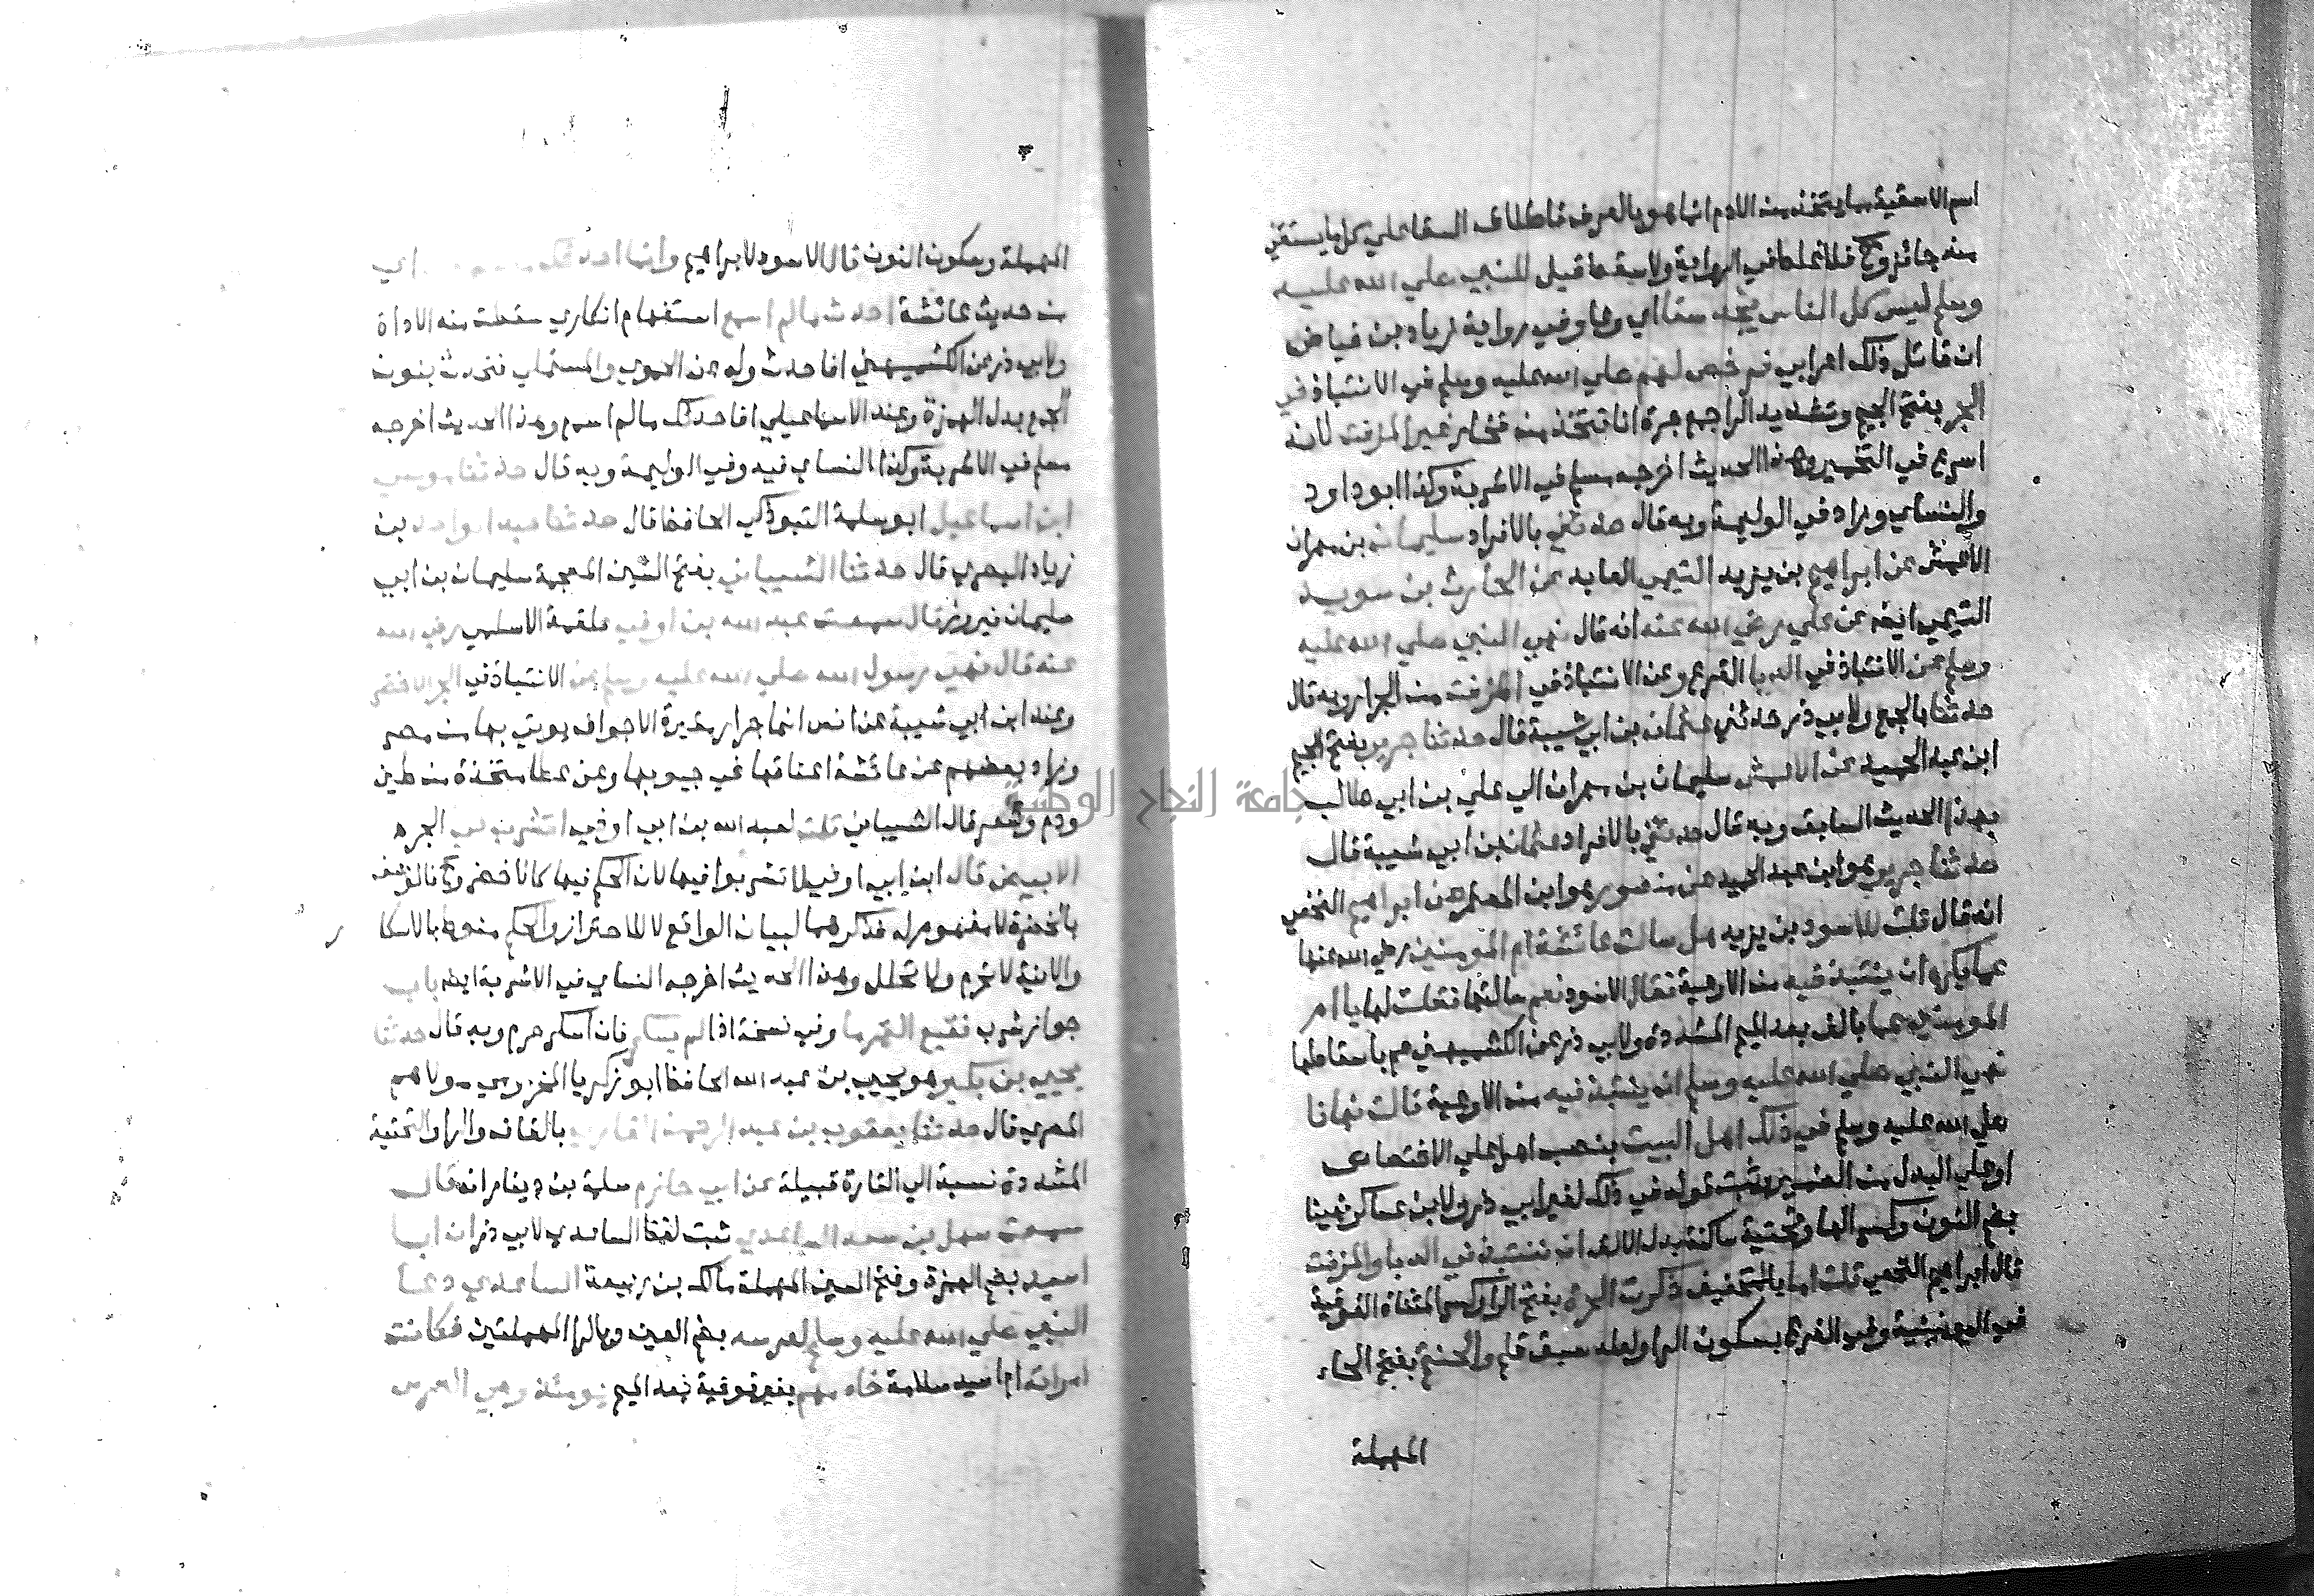 اسم الاسقية بما يتخذ من الادم انما هو بالعرف فاطلاق السقا علي كل ما يستقي
منه جائز وح فلا غلط في الرواية ولا سقط قيل للنبي صلي الله عليه
وسلم ليس كل الناس يجد سقا اي وعا وفي رواية زياد بن فياض
ان قائل ذلك اعرابي فرخص لهم صلي الله عليه وسلم في الانتباذ في
الجر بفتح الجيم وتشديد الرا جمع جرة انا تتخذ من فخار غير المزفت لانه
اسرع في التخمير وهذا الحديث اخرجه مسلم في الاشربة وكذا ابو داود
والنسائي وزاد في الوليمة وبه قال حدثني بالافراد سليمان بن مهران
الاعمش عن ابراهيم بن يزيد التيمي العابد عن الحارث بن سويد
التيمي ايضا عن علي رضي الله عنه انه قال نهي النبي صلي الله عليه
وسلم عن الانتباذ في الدبا القرع وعن الانتباذ في المزفت من الجرار وبه قال
حدثنا بالجمع ولابي ذر حدثني عثمان بن ابي شيبة قال حدثنا جرير بفتح الجيم
ابن عبد الحميد عن الاعمش سليمان بن مهران الي علي بن ابي طالب
بهذا الحديث السابق وبه قال حدثني بالافراد عثمان بن ابي شيبة قال
حدثنا جرير هو ابن عبد الحميد عن منصور هو ابن المعتمر عن ابراهيم النخعي
انه قال قلت للاسود بن يزيد هل سالت عائشة ام المومنين رضي الله عنها
عما يكره ان ينتبذ فيه من الاوعية فقال الاسود نعم سالتها فقلت لها يا ام
المومنين عما بالف بعد الميم المشددة ولابي ذر عن الكشميهني عم باسقاطها
نهي النبي صلي الله عليه وسلم ان ينتبذ فيه من الاوعية قالت نهانا
صلي الله عليه وسلم في ذلك اهل البيت بنصب اهل علي الاختصاص
او علي البدل من الضمير وثبت قوله في ذلك لغير ابي ذر ولابن عساكر نهينا
بضم النون وكسر الها وتحتية ساكنة بدل الالف ان ننتبذ في الدبا والمزفت
قال ابراهيم النخعي قلت اما بالتخفيف ذكرت الجر بفتح الرا وكسر المثناة الفوقية
في اليونينية وفي الفرع بسكون الرا ولعله سبق قلم والحنتم بفتح الحاء
المهملة
المهملة وسكون النون قال الاسود لابراهيم وانما احدثك اي
من حديث عائشة احدث ما لم اسمع استفهام انكاري سقطت منه الاداة
ولابي ذر عن الكشميهني افاحدث وله عن الحموي والمستملي فنحدث بنون
الجمع بدل الهمزة وعند الاسماعيلي افاحدثك ما لم اسمع وهذا الحديث اخرجه
مسلم في الاشربة وكذا النساي فيه وفي الوليمة وبه قال حدثنا موسي
ابن اسماعيل ابو سلمة التبوذكي الحافظ قال حدثنا عبد الواحد بن
زياد البصري قال حدثنا الشيباني بفتح الشين المعجمة سليمان بن ابي
سليمان فيروز قال سمعت عبد الله بن اوفي علقمة الاسلمي رضي الله
عنه قال نهي رسول الله صلي الله عليه وسلم عن الانتباذ في الجر الاخضر
وعند ابن ابي شيبة عن انس انها جرار مقيرة الاجواف يوتي بها من مصر
وزاد بعضهم عن عائشة اعناقها في جنوبها وعن عطا متخذة من طين
ودم وشعر قال الشيباني قلت لعبد الله بن ابي اوفي انشرب في الجر
الابيض قال ابن ابي اوفي لا تشربوا فيها لان الحكم فيها كالاخضر وح فالوصف
بالخضرة لا مفهوم له فذكرهما لبيان الواقع لا للاحتراز والحكم منوط بالاسكا
والانية لا تحرم ولا تحلل وهذا الحديث اخرجه النساي في الاشربة ايضا باب
جواز شرب نقيع التمر ما وفي نسخة اذا لم يسكر فان اسكر حرم وبه قال حدثنا
يحيي بن بكير هو يحيي بن عبد الله الحافظ ابو زكريا المخزومي مولاهم
المصري قال حدثنا يعقوب بن عبد الرحمن القاري بالقاف والرا والتحتية
المشددة نسبة الي القارة قبيلة عن ابي حازم سلمة بن دينار انه قال
سمعت سهل بن سعد الساعدي ثبت لفظ الساعدي لابي ذر ان ابا
اسيد بضم الهمزة وفتح السين المهملة مالك بن ربيعة الساعدي دعا
النبي صلي الله عليه وسلم لعرسه بضم العين والرا المهملتين فكانت
امراته ام اسيد سلامة خادمهم بغير فوقية بعد الميم يومئذ وهي العرس
جامعة النجاح الوطنية